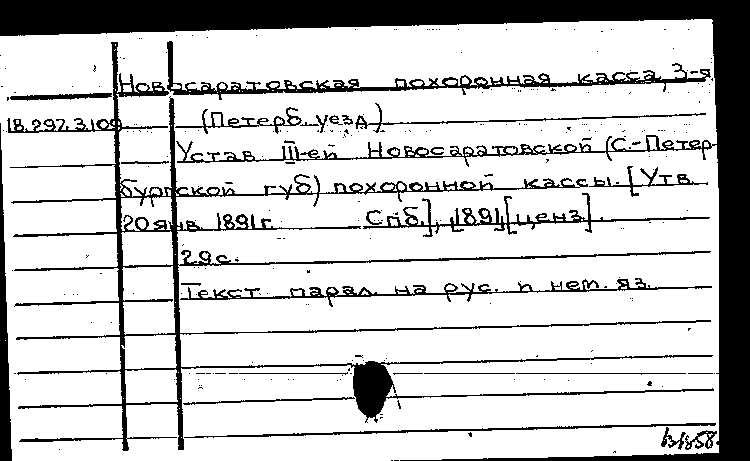 Новосаратовская похоронная касса, 3-я
18.297.3.109 (Петерб. уезд)
Устав III-ей Новосаратовской (С.-Петер-
бургской губ) похоронной кассы. [Утв.
20 янв. 1891 г. Спб.], [1891] [ценз].
29 с.
Текст парал. на рус. и нем. яз.